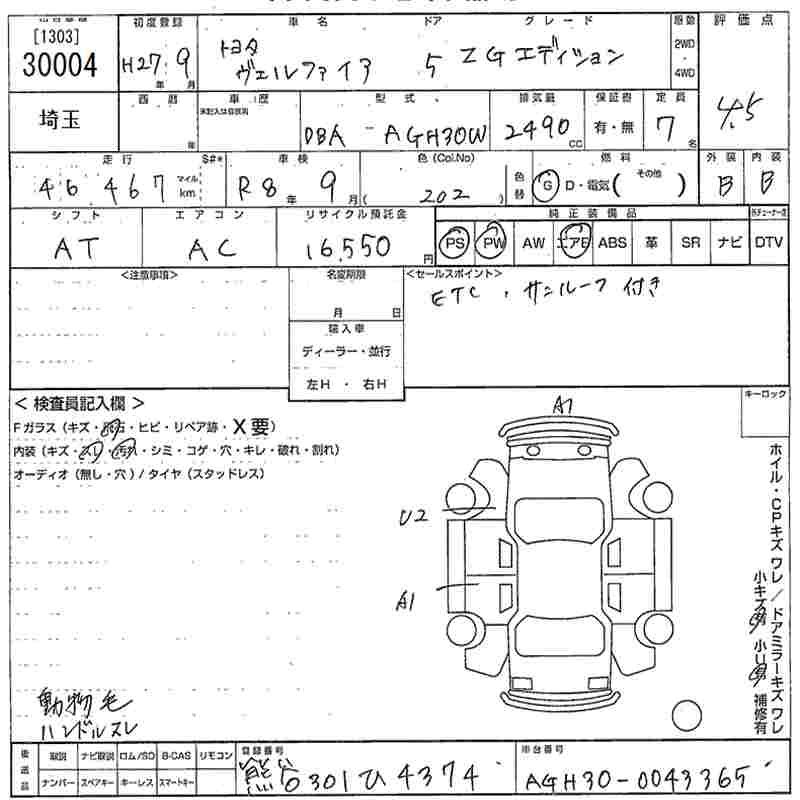 [1303] 初度登録 車名 ドア グレード 原動 評価点
30004 H27 年 9 月 トヨタ ヴェルファイア 5 ZGエディション 2WD・4WD 4.5
埼玉 西暦 年 車歴 型式 排気量 保証書 定員
DBA-AGH30W 2490 cc 有・無 7名
走行 S#* 車検 色(Col.No) 色替 燃料 外装 内装
46,467 マイル km R8年 9月 (202) G D・電気( その他 ) B B
シフト エアコン リサイクル預託金 純正装備品
AT AC 16,550円 PS PW AW エアB ABS 革 SR ナビ DTV
<注意事項> 名変期限 <セールスポイント>
月 日 ETC、サンルーフ付き
輸入車
ディーラー・並行
左H ・ 右H
<検査員記入欄> キーロック
Fガラス(キズ・飛石・ヒビ・リペア跡・X要)
内装(キズ・スレ・汚れ・シミ・コゲ・穴・キレ・破れ・割れ)
オーディオ(無し・穴)/タイヤ(スタッドレス)
A1
U2
A1
ホイル・CPキズ ワレ/ドアミラーキズ ワレ
小キズ有 小U有 補修有
動物毛
ハンドルスレ
後送品 取説 ナビ取説 ロム/SD B-CAS リモコン 登録番号 車台番号
ナンバー スペアキー キーレス スマートキー 熊谷 301 ひ 4374 AGH30-0043365